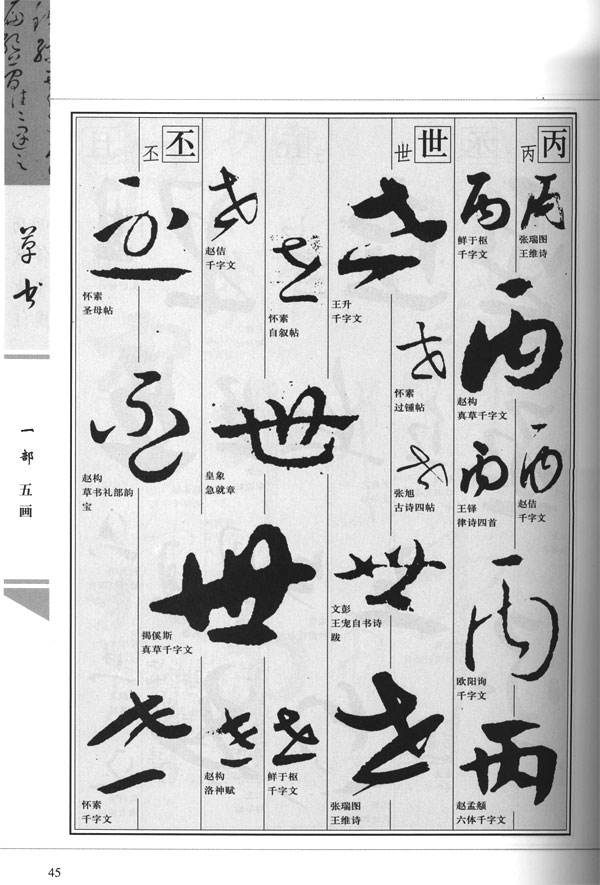 草书
一部 五画
丙
丙
张瑞图
王维诗
鲜于枢
千字文
赵构
真草千字文
赵佶
千字文
王铎
律诗四首
欧阳询
千字文
赵孟頫
六体千字文
世
世
王升
千字文
怀素
过锺帖
张旭
古诗四帖
文彭
王宠自书诗
跋
张瑞图
王维诗
怀素
自叙帖
鲜于枢
千字文
赵佶
千字文
皇象
急就章
揭傒斯
真草千字文
赵构
洛神赋
丕
丕
怀素
圣母帖
赵构
草书礼部韵
宝
怀素
千字文
45